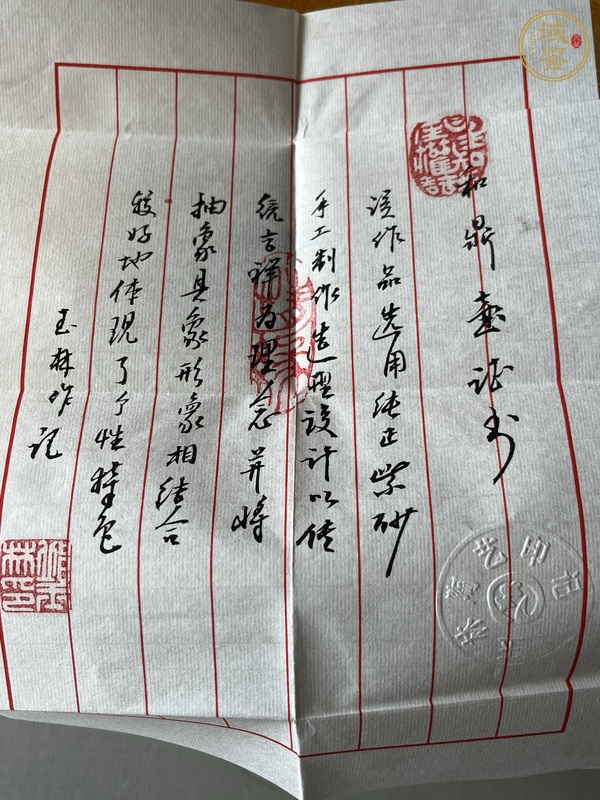 和鼎壶证书
该作品选用纯正紫砂
手工制作造型设计以传
统吉祥为理念并将
抽象具象形象相结合
较好地体现了个性特色
玉林作记